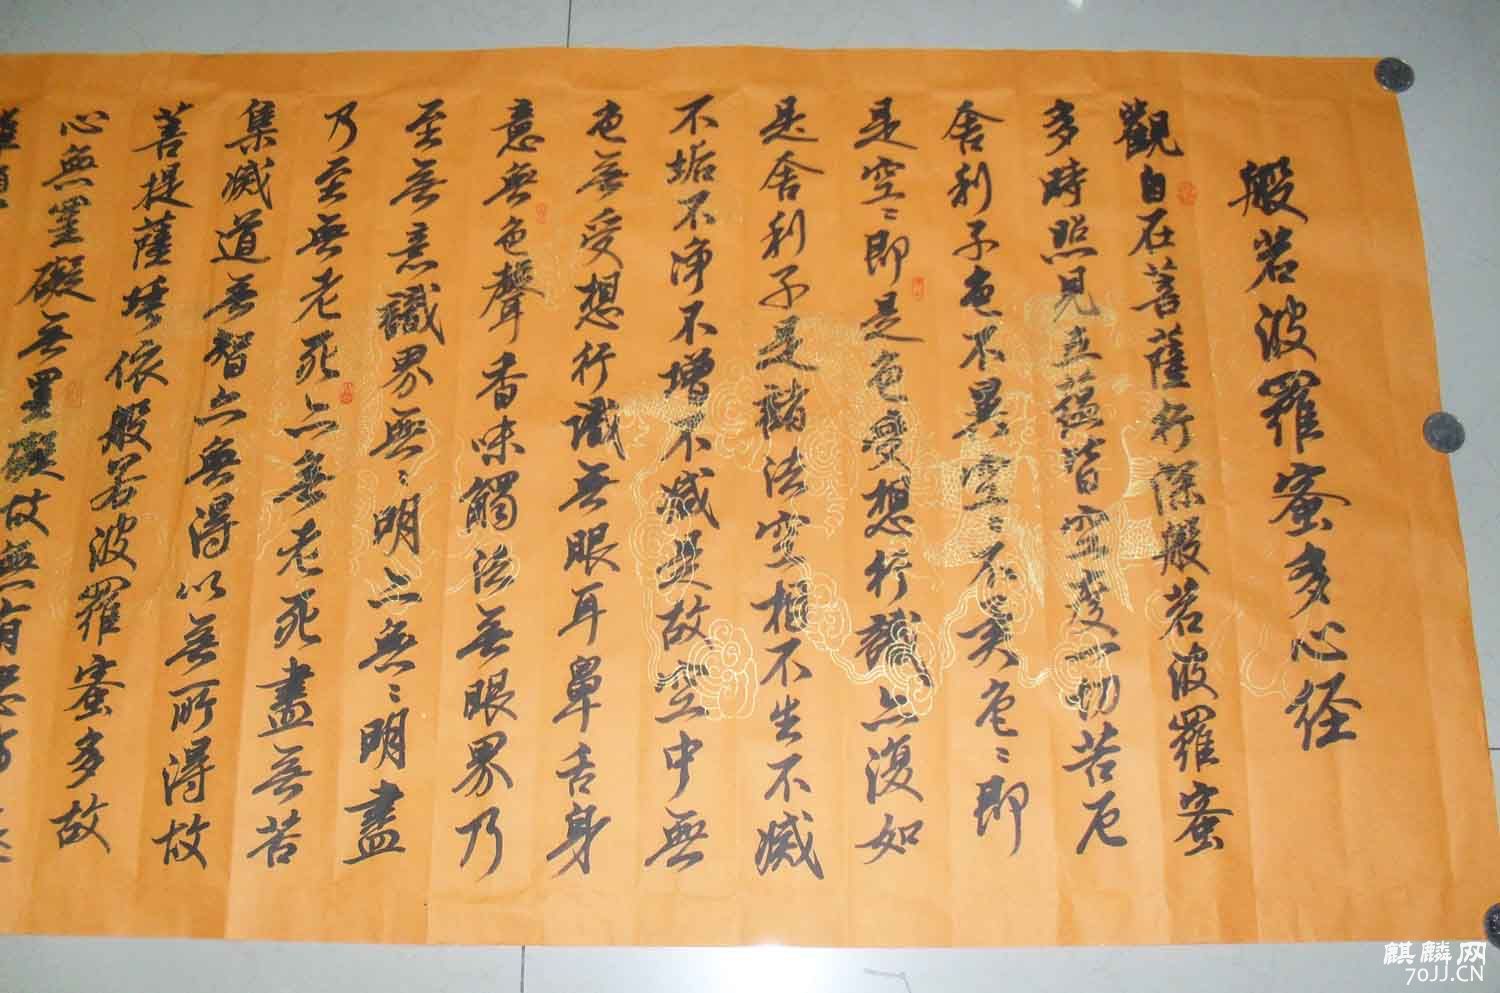 般若波羅蜜多心径
觀自在菩薩行深般若波羅蜜
多時照見五蘊皆空度一切苦厄
舍利子色不異空〻不異色〻即
是空〻即是色受想行識亦復如
是舍利子是諸法空相不生不滅
不垢不净不增不减是故空中無
色無受想行識無眼耳鼻舌身
意無色聲香味觸法無眼界乃
至無意識界無〻明亦無〻明盡
乃至無老死亦無老死盡無苦
集滅道無智亦無得以無所得故
菩提薩埵依般若波羅蜜多故
心無罣礙無罣礙故無有恐怖
麒麟网
70JJ.CN